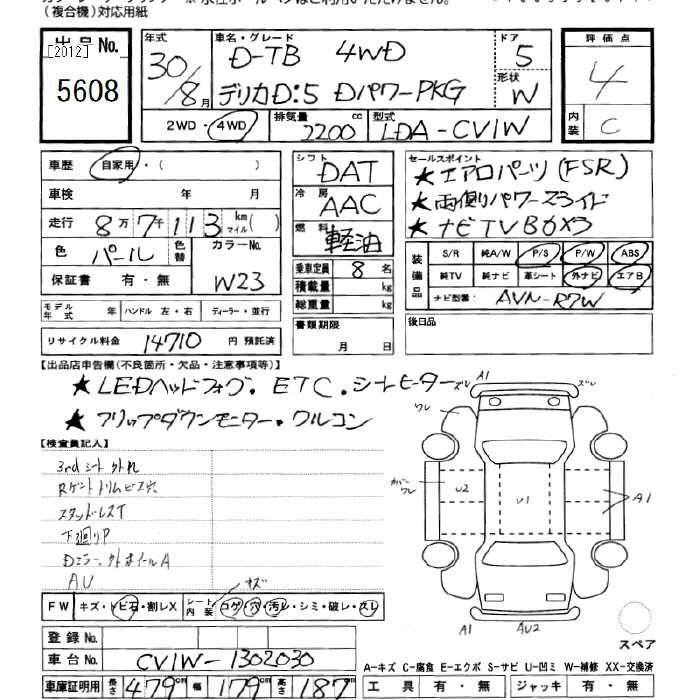 (複合機)対応用紙
出品No.
[2012]
5608
年式
30/8月
車名・グレード
D-TB 4WD
デリカD:5 Dパワー PKG
ドア
5
形状
W
評価点
4
内装
C
2WD・4WD
排気量
2200cc
型式
LDA-CV1W
車歴 自家用・( )
車検 年 月
走行 8万7千113km マイル( )
色 パール 色替 カラーNo. W23
保証書 有・無
モデル年式 年 ハンドル 左・右 ディーラー・並行
リサイクル料金 14710 円 預託済
シフト
DAT
冷房
AAC
燃料
軽油
乗車定員 8 名
積載量 kg
総重量 kg
書類期限
月 日
セールスポイント
★エアロパーツ(FSR)
★両側パワースライド
★ナビTVBカメラ
装備品
S/R 純A/W P/S P/W ABS
純TV 純ナビ 革シート 外ナビ エアB
ナビ型番: AVN-R7W
後日品
【出品店申告欄(不良箇所・欠品・注意事項等)】
★LEDヘッドフォグ.ETC.シートヒーター
★フリップダウンモニター・クルコン
【検査員記入】
3rdシート外れ
Rゲートトリムビス穴
スタッドレスT
下廻りP
Dミラー、外ホイールA
AU
キズ
FW キズ・トビ石・割レX シート内装 コゲ・穴・汚レ・シミ・破レ・スレ
登録No.
車台No. CV1W-1302030
車庫証明用 長さ 479cm 幅 179cm 高さ 187cm
A1
ズレ
ズレ
ワレ
カバーワレ
U2
U1
A1
A1
AU2
スペア
A-キズ C-腐食 E-エクボ S-サビ U-凹ミ W-補修 XX-交換済
工具 有・無 ジャッキ 有・無